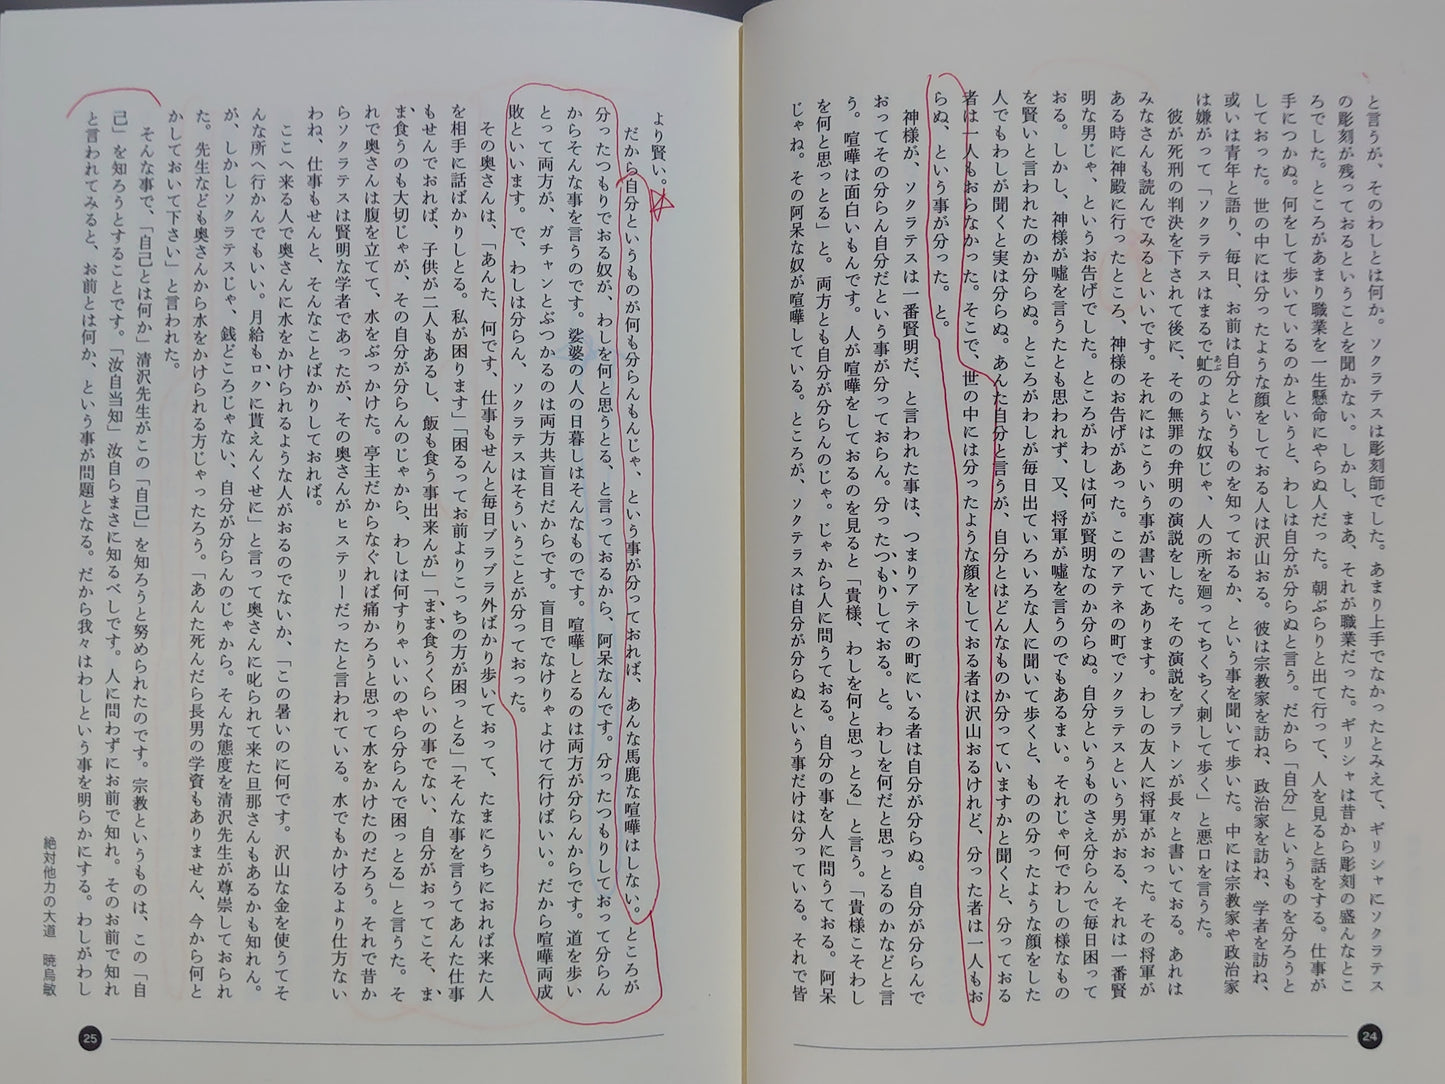 と言うが、そのわしとは何か。ソクラテスは彫刻師でした。あまり上手でなかったとみえて、ギリシャにソクラテス
の彫刻が残っておるということを聞かない。しかし、まあ、それが職業だった。ギリシャは昔から彫刻の盛んなとこ
ろでした。ところがあまり職業を一生懸命にやらぬ人だった。朝ぶらりと出て行って、人を見ると話をする。仕事が
手につかぬ。何をして歩いているのかというと、わしは自分が分らぬと言う。だから「自分」というものを分ろうと
しておった。世の中には分ったような顔をしておる人は沢山おる。彼は宗教家を訪ね、政治家を訪ね、学者を訪ね、
或いは青年と語り、毎日、お前は自分というものを知っておるか、という事を聞いて歩いた。中には宗教家や政治家
は嫌がって「ソクラテスはまるで虻のような奴じゃ、人の所を廻ってちくちく刺して歩く」と悪口を言うた。
彼が死刑の判決を下されて後に、その無罪の弁明の演説をした。その演説をプラトンが長々と書いておる。あれは
みなさんも読んでみるといいです。それにはこういう事が書いてあります。わしの友人に将軍がおった。その将軍が
ある時に神殿に行ったところ、神様のお告げがあった。このアテネの町でソクラテスという男がおる、それは一番賢
明な男じゃ、というお告げでした。ところがわしは何が賢明なのか分らぬ。自分というものさえ分らんで毎日困って
おる。しかし、神様が嘘を言うたとも思われず、又、将軍が嘘を言うのでもあるまい。それじゃ何でわしの様なもの
を賢いと言われたのか分らぬ。ところがわしが毎日出ていろいろな人に聞いて歩くと、もの の分ったような顔をした
人でもわしが聞くと実は分らぬ。あんた自分と言うが、自分とはどんなものか分っていますかと聞くと、分っておる
者は一人もおらなかった。そこで、世の中には分ったような顔をしておる者は沢山おるけれど、分った者は一人もお
らぬ、という事が分った。と。
神様が、ソクラテスは一番賢明だ、と言われた事は、つまりアテネの町にいる者は自分が分らぬ。自分が分らんで
おってその分らん自分だという事が分っておらん。分ったつもりしておる。と。わしを何だと思っとるのかなどと言
う。喧嘩は面白いもんです。人が喧嘩をしておるのを見ると「貴様、わしを何と思っとる」と言う。「貴様こそわし
を何と思っとる」と。両方とも自分が分らんのじゃ。じゃから人に問うておる。自分の事を人に問うておる。阿呆
じゃね。その阿呆な奴が喧嘩している。ところが、ソクテラスは自分が分らぬという事だけは分っている。それで皆
24
より賢い。
だから自分というものが何も分らんもんじゃ、という事が分っておれば、あんな馬鹿な喧嘩はしない。ところが
分ったつもりでおる奴が、わしを何と思うとる、と言っておるから、阿呆なんです。分ったつもりしておって分らん
からそんな事を言うのです。娑婆の人の日暮しはそんなものです。喧嘩しとるのは両方が分らんからです。道を歩い
とって両方が、ガチャンとぶつかるのは両方共盲目だからです。盲目でなけりゃよけて行けばいい。だから喧嘩両成
敗といいます。で、わしは分らん、ソクラテスはそういうことが分っておった。
その奥さんは、「あんた、何です、仕事もせんと毎日ブラブラ外ばかり歩いておって、たまにうちにおれば来た人
を相手に話ばかりしとる。私が困ります」「困るってお前よりこっちの方が困っとる」「そんな事を言うてあんた仕事
もせんでおれば、子供が二人もあるし、飯も食う事出来んが」「まま食うくらいの事でない、自分がおってこそ、ま
ま食うのも大切じゃが、その自分が分らんのじゃから、わしは何すりゃいいのやら分らんで困っとる」と言うた。そ
れで奥さんは腹を立てて、水をぶっかけた。亭主だからなぐれば痛かろうと思って水をかけたのだろう。それで昔か
らソクラテスは賢明な学者であったが、その奥さんがヒステリーだったと言われている。水でもかけるより仕方ない
わね、仕事もせんと、そんなことばかりしておれば。
ここへ来る人で奥さんに水をかけられるような人がおるのでないか、「この暑いのに何です。沢山な金を使うてそ
んな所へ行かんでもいい。月給もロクに貰えんくせに」と言って奥さんに叱られて来た旦那さんもあるかも知れん。
が、しかしソクラテスじゃ、銭どころじゃない、自分が分らんのじゃから。そんな態度を清沢先生が尊崇しておられ
た。先生なども奥さんから水をかけられる方じゃったろう。「あんた死んだら長男の学資もありません、今から何と
かしておいて下さい」と言われた。
そんな事で、「自己とは何か」清沢先生がこの「自己」を知ろうと努められたのです。宗教というものは、この「自
己」を知ろうとすることです。「汝自当知」汝自らまさに知るべしです。人に問わずにお前で知れ。そのお前で知れ
と言われてみると、お前とは何か、という事が問題となる。だから我々はわしという事を明らかにする。わしがわし
絶対他力の大道 暁烏敏
25